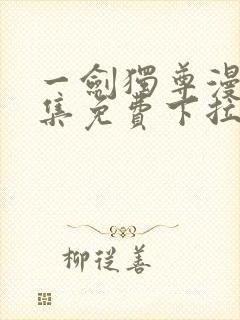 一劍獨尊漫
集免費下拉
柳從善